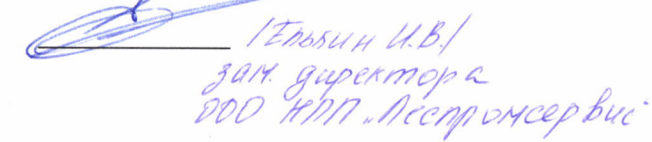 /Елькин И.В./
зам. директора
ООО НПП „Леспромсервис"